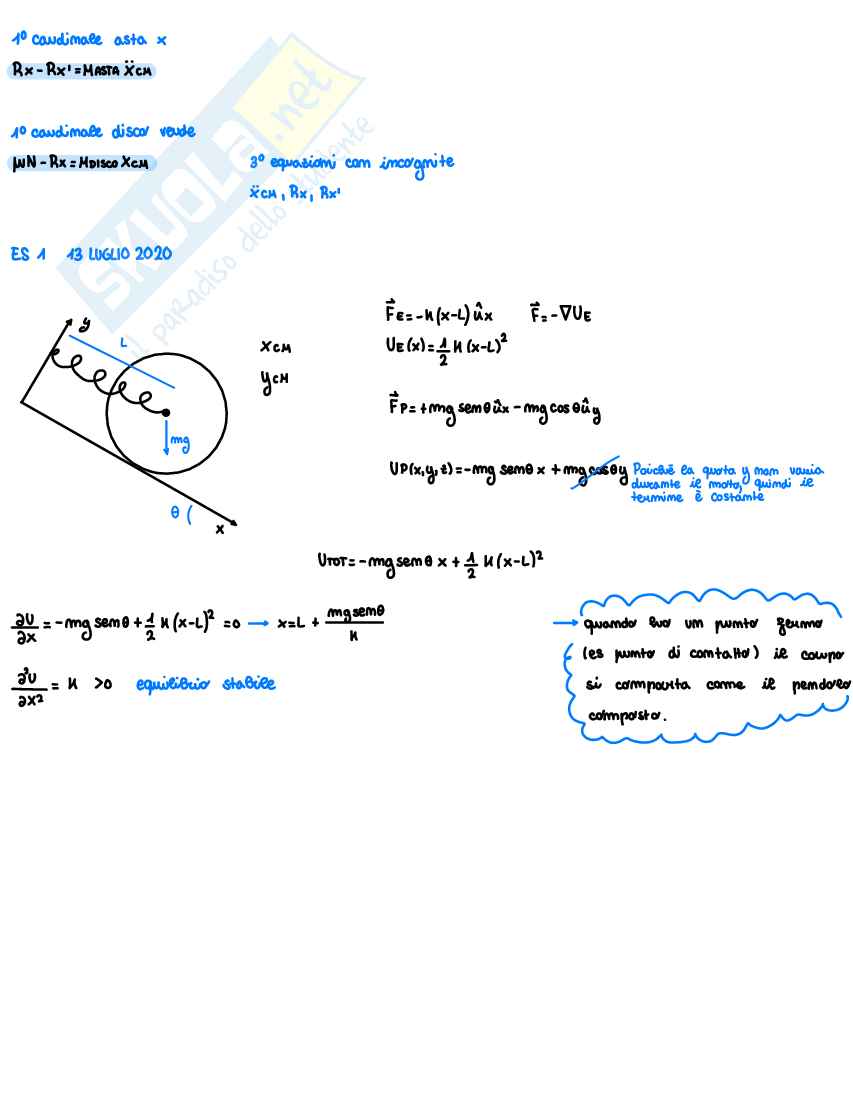 1° cardinale asta x
Rx - Rx' = MASTA ẍCM
1° cardinale disco verde
μN - Rx = MDISCO ẍCM
3° equazioni con incognite
ẍCM, Rx, Rx'
ES 1 13 LUGLIO 2020
SKUOLA.net
il paradiso dello studente
y
L
mg
θ (
x
xCM
yCM
F⃗E = -K(x-L) ûx F⃗ = -∇UE
UE(x) = 1/2 K(x-L)²
F⃗P = +mg senθ ûx - mg cosθ ûy
UP(x,y,z) = -mg senθ x + mg cosθ y
Poiché la quota y non varia
durante il moto, quindi il
termine è costante
UTOT = -mg sen θ x + 1/2 K(x-L)²
∂U/∂x = -mg sen θ + 1/2 K(x-L)² = 0 → x = L + mg senθ/K
∂²U/∂x² = K > 0 equilibrio stabile
→ quando ho un punto fermo
(es punto di contatto) il corpo
si comporta come il pendolo
composto.